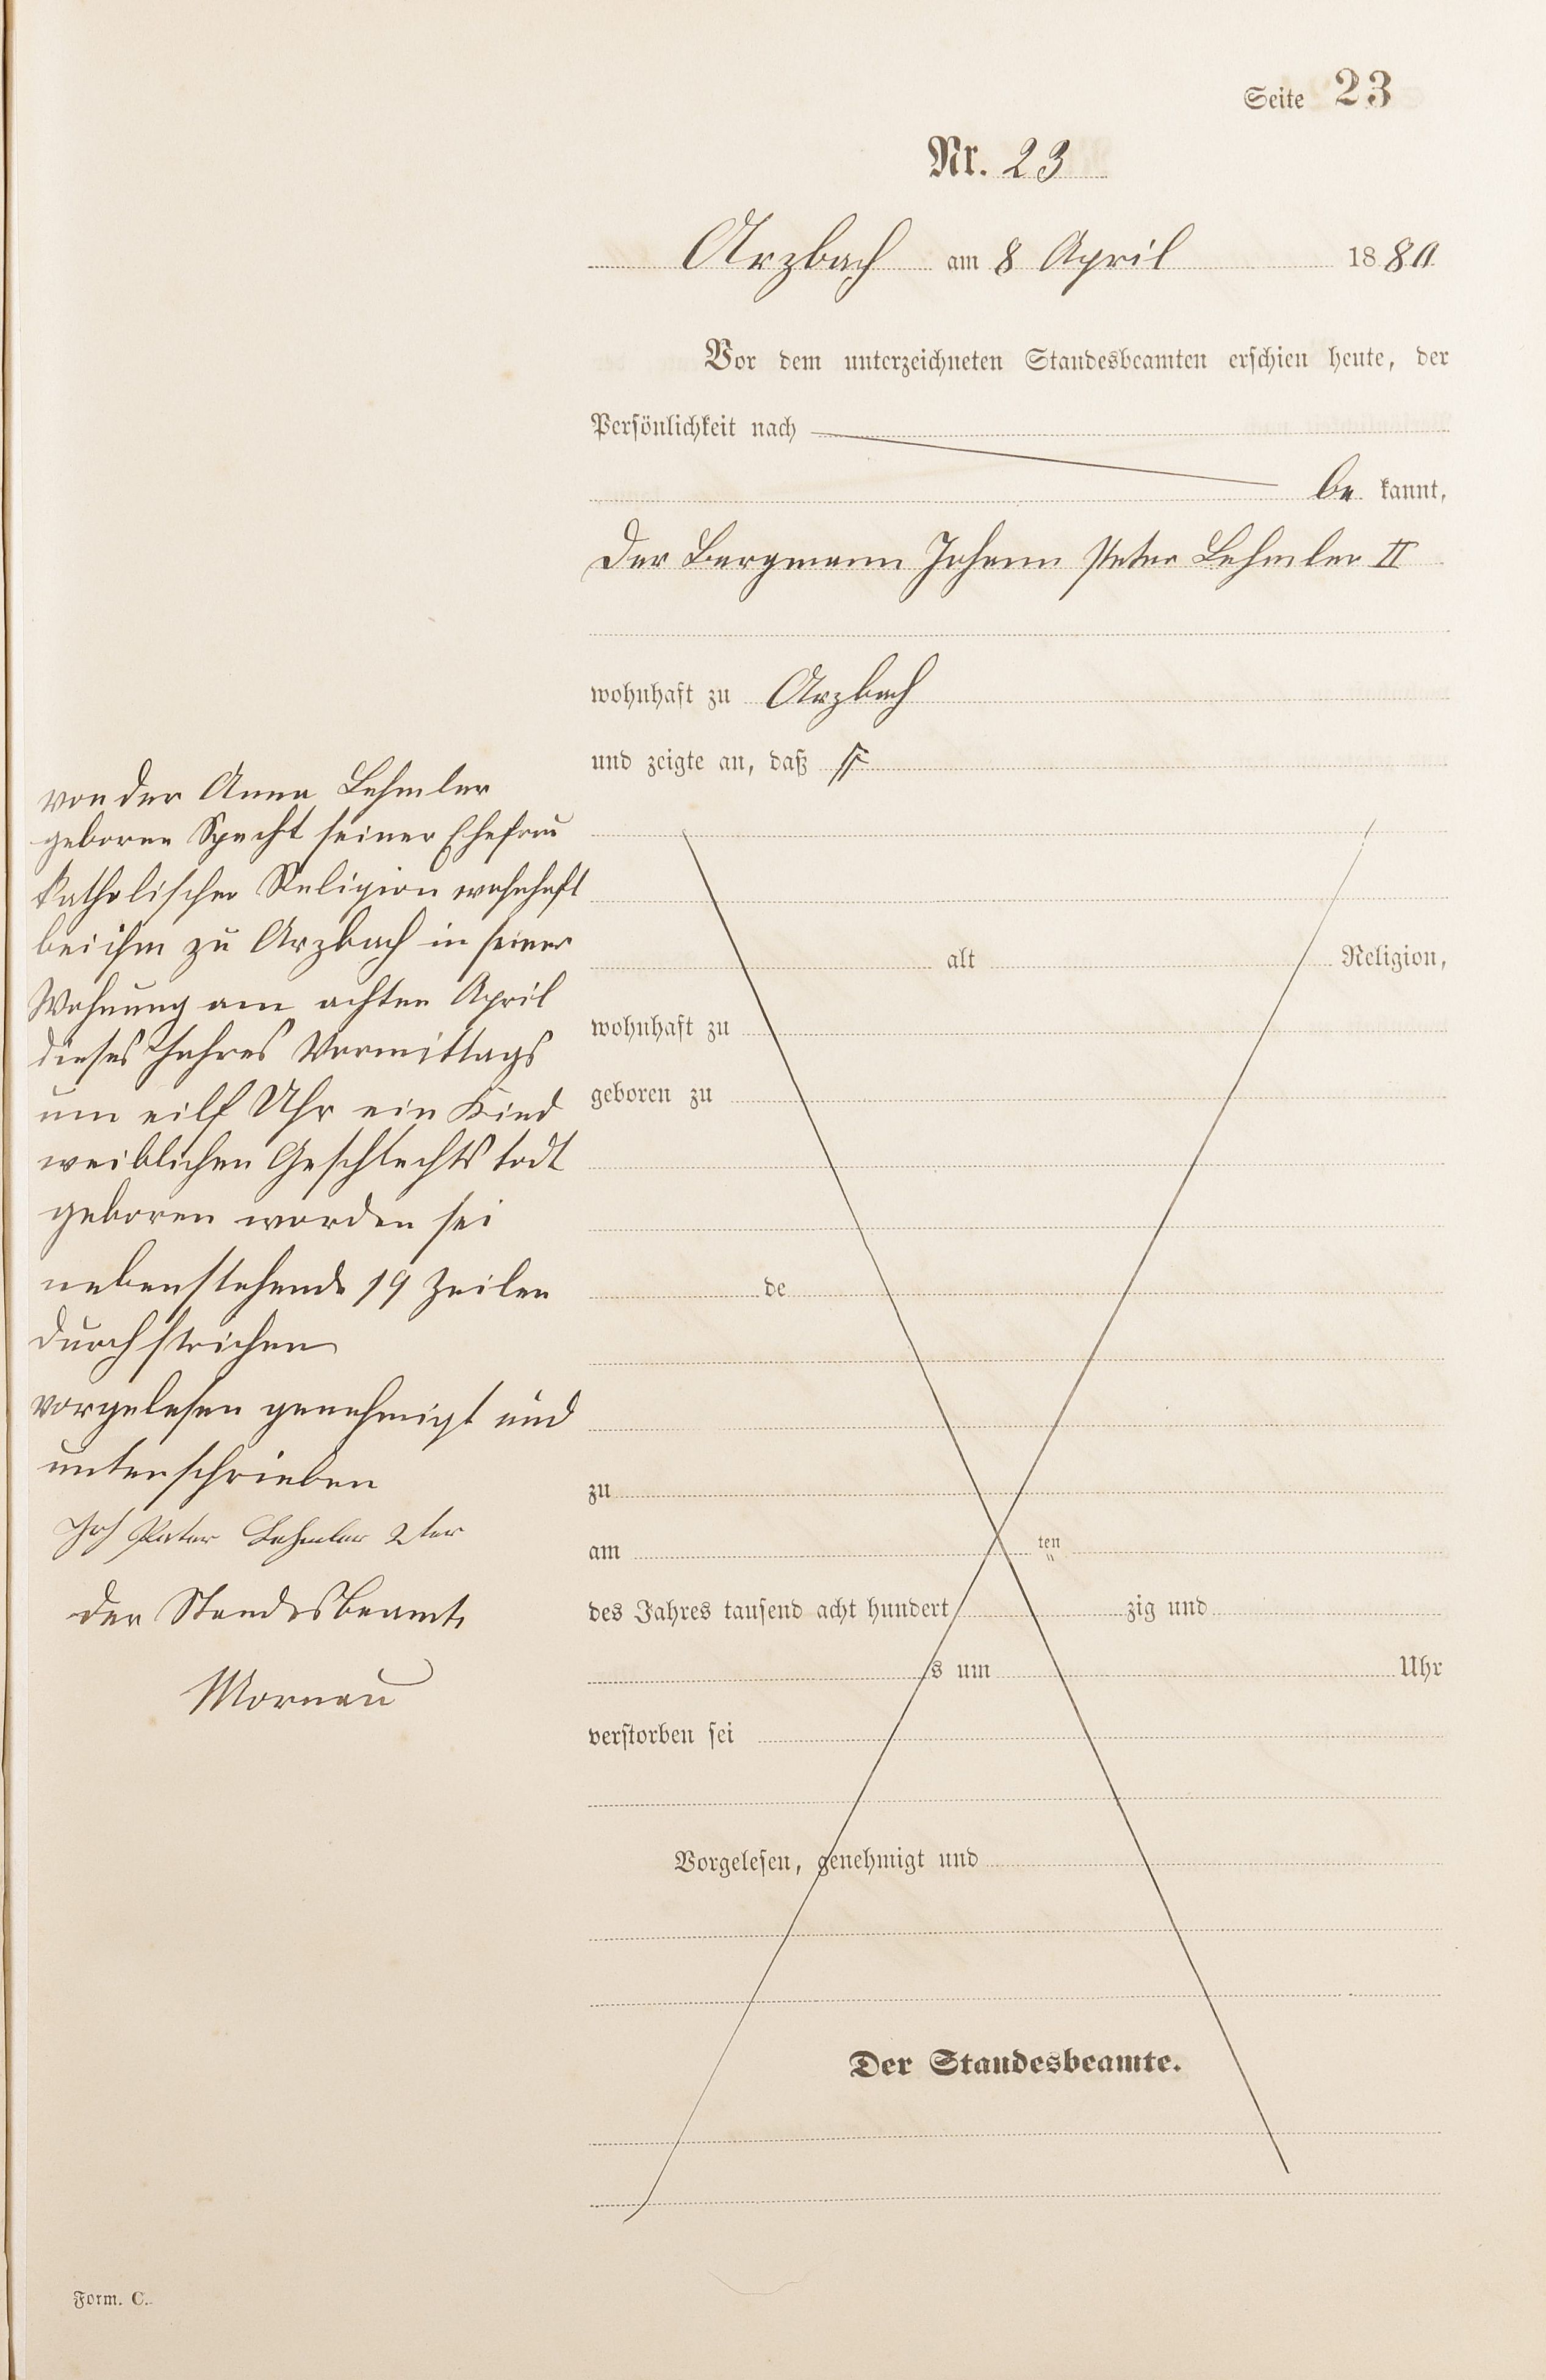 Seite 23
Nr. 23
Arzbach am 8 April 1880
Vor dem unterzeichneten Standesbeamten erschien heute, der
Persönlichkeit nach
be kannt,
der Bergmann Johann Peter Lehmler II
wohnhaft zu Arzbach
und zeigte an, daß
von der Anna Lehmler
geborene Specht seiner Ehefrau
katholischer Religion wohnhaft
bei ihm zu Arzbach in seiner
Wohnung am achten April
dieses Jahres Vormittags
um eilf Uhr ein Kind
weiblichen Geschlechts todt
geboren worden sei
nebenstehende 19 Zeilen
durchstrichen
vorgelesen genehmigt und
unterschrieben
Joh Peter Lehmler 2ter
der Standesbeamte
Mornau
alt Religion,
wohnhaft zu
geboren zu
de
zu
am ten
des Jahres tausend acht hundert zig und
s um Uhr
verstorben sei
Vorgelesen, genehmigt und
Der Standesbeamte.
Form. C.